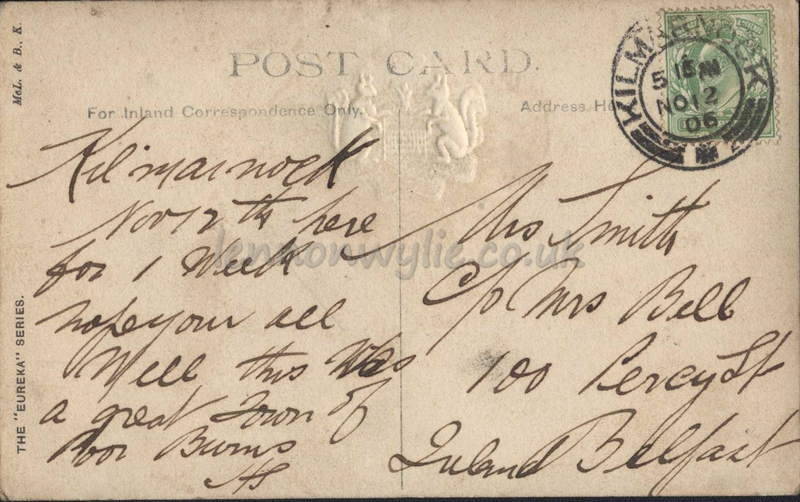 McL. & B., K.
THE "EUREKA" SERIES.
POST CARD.
For Inland Correspondence Only.
Address
KILMARNOCK
5 15 AM
NO 12
06
Kilmarnock
Nov 12th here
for 1 Week
hope your all
Well this Was
a great Town of
Burns
Mrs Smith
c/o Mrs Bell
100 Percy St
Belfast
lennonwylie.co.uk